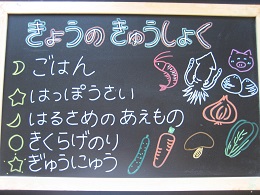 きょうのきゅうしょく
ごはん
はっぽうさい
はるさめのあえもの
きくらげのり
ぎゅうにゅう